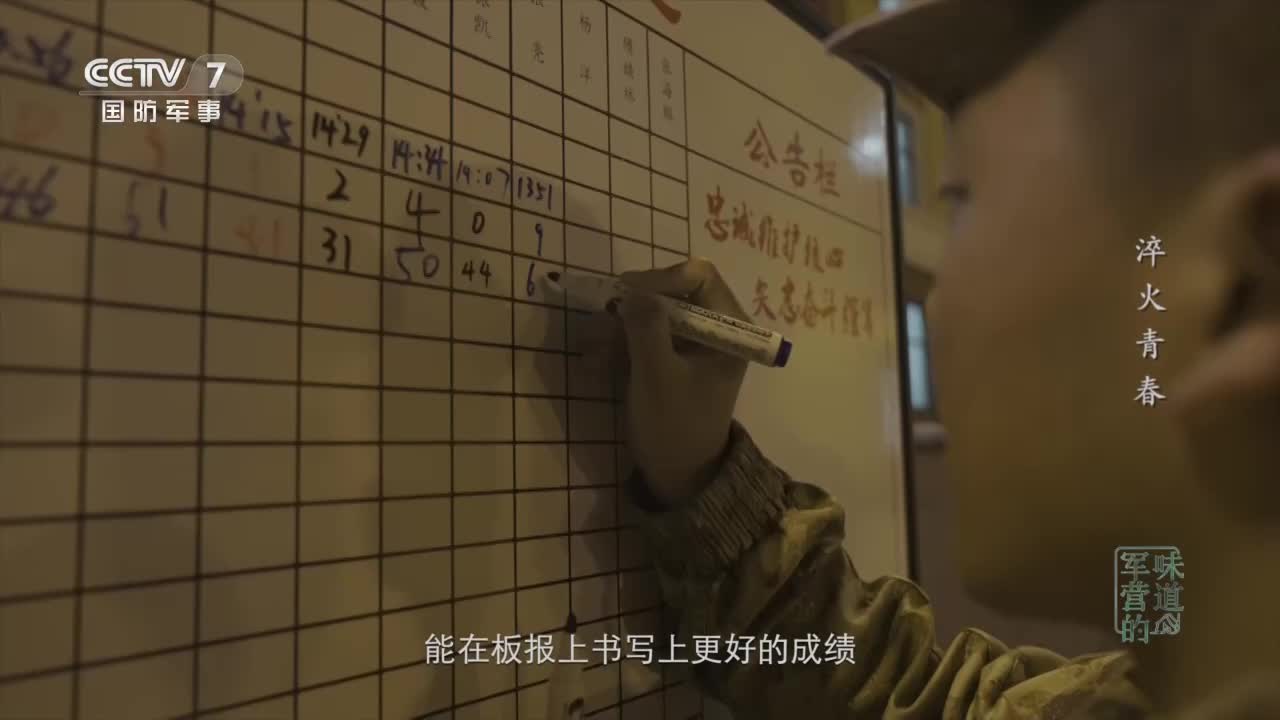 CCTV 7
国防军事
张凯
张亮
杨洋
14'15
14'29
14:34
14:07
1351
2
4
0
9
46
51
31
50
44
6
公告栏
忠诚维护核心
矢志奋斗强军
淬火青春
军营的
味道
能在板报上书写上更好的成绩